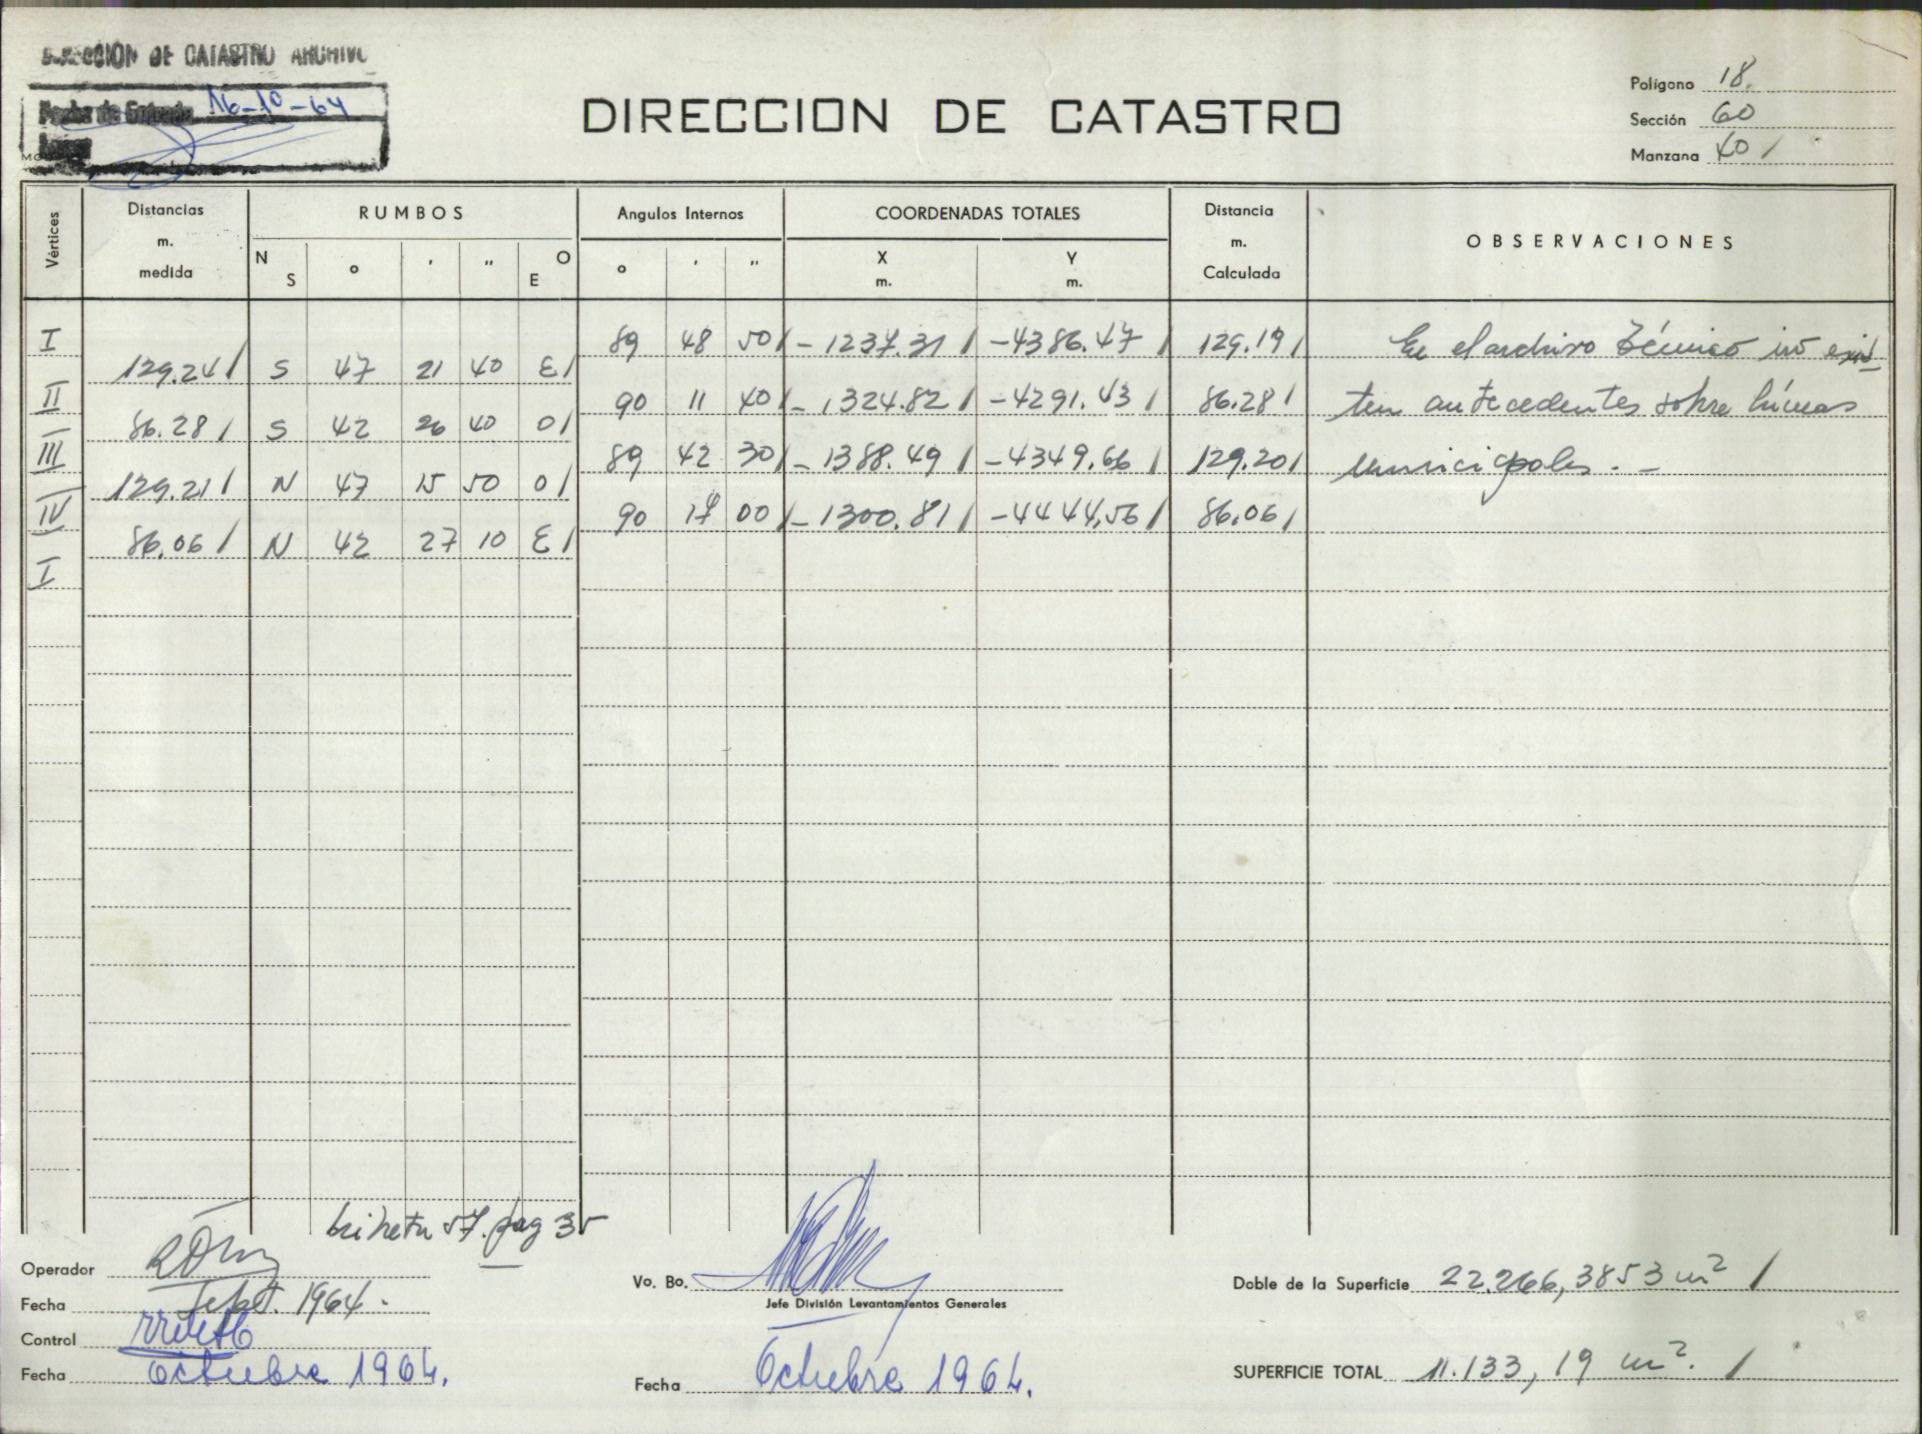 DIRECCION DE CATASTRO ARCHIVO
Fecha de Entrada 16-10-64
DIRECCION DE CATASTRO
Polígono 18.
Sección 60
Manzana 40 /
Vértices Distancias m. medida RUMBOS Angulos Internos COORDENADAS TOTALES Distancia m. Calculada OBSERVACIONES
N S ° ' " E O ° ' " X m. Y m.
I 89 48 50/ -1237.31/ -4386.47/ 129.19/ En el archivo técnico no exis
129.24/ S 47 21 40 E/
II 90 11 40/ -1324.82/ -4291.43/ 86.28/ ten antecedentes sobre líneas
86.28/ S 42 26 40 O/
III 89 42 30/ -1388.49/ -4349.66/ 129.20/ municipales. -
129.21/ N 47 15 50 O/
IV 90 17 00/ -1300.81/ -4444,56/ 86.06/
86.06/ N 42 27 10 E/
I
libreta 57. pag 35
Operador
Fecha Sept. 1964.
Control
Fecha Octubre 1964.
Vo. Bo.
Jefe División Levantamientos Generales
Fecha Octubre 1964.
Doble de la Superficie 22.266,3853 m² /
SUPERFICIE TOTAL 11.133,19 m². /